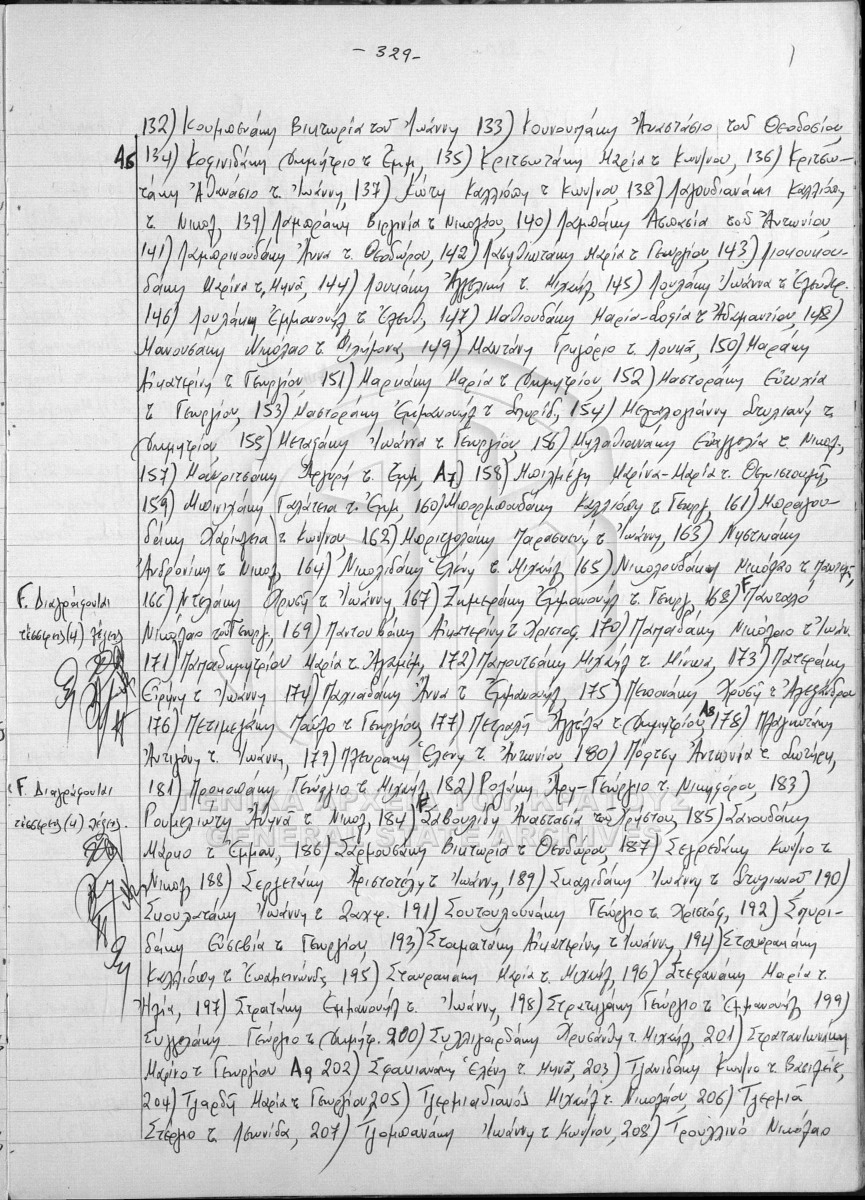 - 329 -
132) Κουμπενάκη Βικτωρία τοῦ Ἰωάννη 133) Κουνουπάκη Ἀναστάσιο τοῦ Θεοδοσίου,
Α5 134) Κοφινιδάκη Δημήτριο τ. Ἐμμ, 135) Κριτσωτάκη Μαρία τ Κων/νου, 136) Κριτσω-
τάκη Ἀθανάσιο τ. Ἰωάννη, 137) Κώτη Καλλιόπη τ Κων/νου, 138) Λαγουδιανάκη Καλλιόπη
τ. Νικολ, 139) Λαμπράκη Βιργινία τ Νικολάου, 140) Λαμπάκη Ἀσπασία τοῦ Ἀντωνίου,
141) Λαμπρινουδάκη Ἄννα τ. Θεοδώρου, 142) Λασηθιωτάκη Μαρία τ Γεωργίου, 143)
δάκη Μαρίνα τ. Μηνᾶ, 144) Λουκάκη Ἀγγελική τ. Μιχαήλ, 145) Λουλάκη Ἰωάννα τ Ἐλευθερ.
146) Λουλάκη Ἐμμανουήλ τ. Ἐλευθ, 147) Μαθιουδάκη Μαρία-Σοφία τ Ἀδαμαντίου, 148)
Μανουσάκη Νικόλαο τ. Φιλήμονα, 149) Μαντάκη Γρηγόριο τ. Λουκᾶ, 150) Μαράκη
Αἰκατερίνη τ Γεωργίου, 151) Μαρκάκη Μαρία τ Δημητρίου, 152) Μαστοράκη Εὐτυχία
τ Γεωργίου, 153) Μαστοράκη Ἐμμανουήλ τ Σπυρίδ, 154) Μεγαλογιάννη Στυλιανή τ
Δημητρίου, 155) Μεταξάκη Ἰωάννα τ Γεωργίου, 156) Μυλαθιανάκη Εὐαγγελία τ. Νικολ,
157) Μαυριτσάκη Ἀργυρή τ. Ἐμμ, Α7) 158) Μπιλμέζη Μαρίνα-Μαρία τ. Θεμιστοκλῆ,
159) Μπινιχάκη Γαλάτεια τ. Ἐμμ, 160) Μπορμπουδάκη Καλλιόπη τ Γεωργ, 161) Μπραγου-
δάκη Χαρίκλεια τ Κων/νου, 162) Παρασκευή τ Ἰωάννη, 163) Νηστικάκη
Ἀνδρονίκη τ Νικολ, 164) Νικολιδάκη Ἑλένη τ. Μιχαήλ, 165) Νικολουδάκη Νικόλαο τ Παντελῆ,
F. Διαγράφονται 166) Ντελάκη Χρυσῆ τ Ἰωάννη, 167) Ξημεράκη Ἐμμανουήλ τ. Γεωργ, 168) F Πανταλό
τέσσερεις (4) λέξεις Νικόλαο τοῦ Γεωργ, 169) Παντουβάκη Αἰκατερίνη τ Χριστοφ, 170) Παπαδάκη Νικόλαο τ Ἰωάν.
171) Παπαδημητρίου Μαρία τ. Ἀγαμέμ, 172) Παπουτσάκη Μιχαήλ τ. Μίνωα, 173) Πατεράκη
Εἰρήνη τ Ἰωάννη, 174) Παχιαδάκη Ἄννα τ Ἐμμανουήλ, 175) Πεπονάκη Χρυσῆ τ Ἀλεξάνδρου
176) Πετιμεζάκη Παῦλο τ Γεωργίου, 177) Πετραλῆ Ἀγγέλα τ Δημητρίου, Α8 178) Πλαγιωτάκη
Ἀντιγόνη τ. Ἰωάννη, 179) Πλευράκη Ἑλένη τ. Ἀντωνίου, 180) Πόρτση Ἀντωνία τ. Σωτήρη,
F. Διαγράφονται 181) Προκοπάκη Γεώργιο τ Μιχαήλ, 182) Ρολάκη Ἀρη-Γεώργιο τ. Νικηφόρου, 183)
τέσσερεις (4) λέξεις. Ρουμελιώτη Ἀθηνᾶ τ Νικολ, 184) F Σαβουλίδη Ἀναστασία τοῦ Χρήστου, 185) Σανουδάκη
Μάρκο τ Ἐμμαν, 186) Σαρμουσάκη Βικτωρία τ Θεοδώρου, 187) Σεγρεδάκη Κων/νο τ
Νικολ, 188) Σεργετάκη Ἀριστοτέλη τ Ἰωάννη, 189) Σκαλιδάκη Ἰωάννη τ Στυλιανοῦ, 190)
Σκουλατάκη Ἰωάννη τ Ζαχαρ. 191) Σουτουλουνάκη Γεώργιο τ. Χριστοφ, 192) Σπυρι-
δάκη Εὐσεβία τ Γεωργίου, 193) Σταματάκη Αἰκατερίνη τ Ἰωάννη, 194) Σταυρακάκη
Καλλιόπη τ Ἐπαμεινώνδα 195) Σταυρακάκη Μαρία τ. Μιχαήλ, 196) Στεφανάκη Μαρία τ.
Ἠλία, 197) Στρατάκη Ἐμμανουήλ τ. Ἰωάννη, 198) Στρατηγάκη Γεώργιο τ Ἐμμανουήλ, 199)
Συγγελάκη Γεώργιο τ Δημήτρ. 200) Συλλιγαρδάκη Χρυσάνθη τ. Μιχαήλ, 201)
Μαρίνο τ Γεωργίου Α9 202) Σφακιανάκη Ἑλένη τ. Μηνᾶ, 203) Τζανιδάκη Κων/νο τ Βασιλείου,
204) Τζαρδῆ Μαρία τ Γεωργίου 205) Τζερμιαδιανός Μιχαήλ τ. Νικολάου, 206) Τζερμιᾶ
Στέργιο τ. Λεωνίδα, 207) Τζομπανάκη Ἰωάννη τ. Κων/νου, 208) Τρουλλινό Νικόλαο